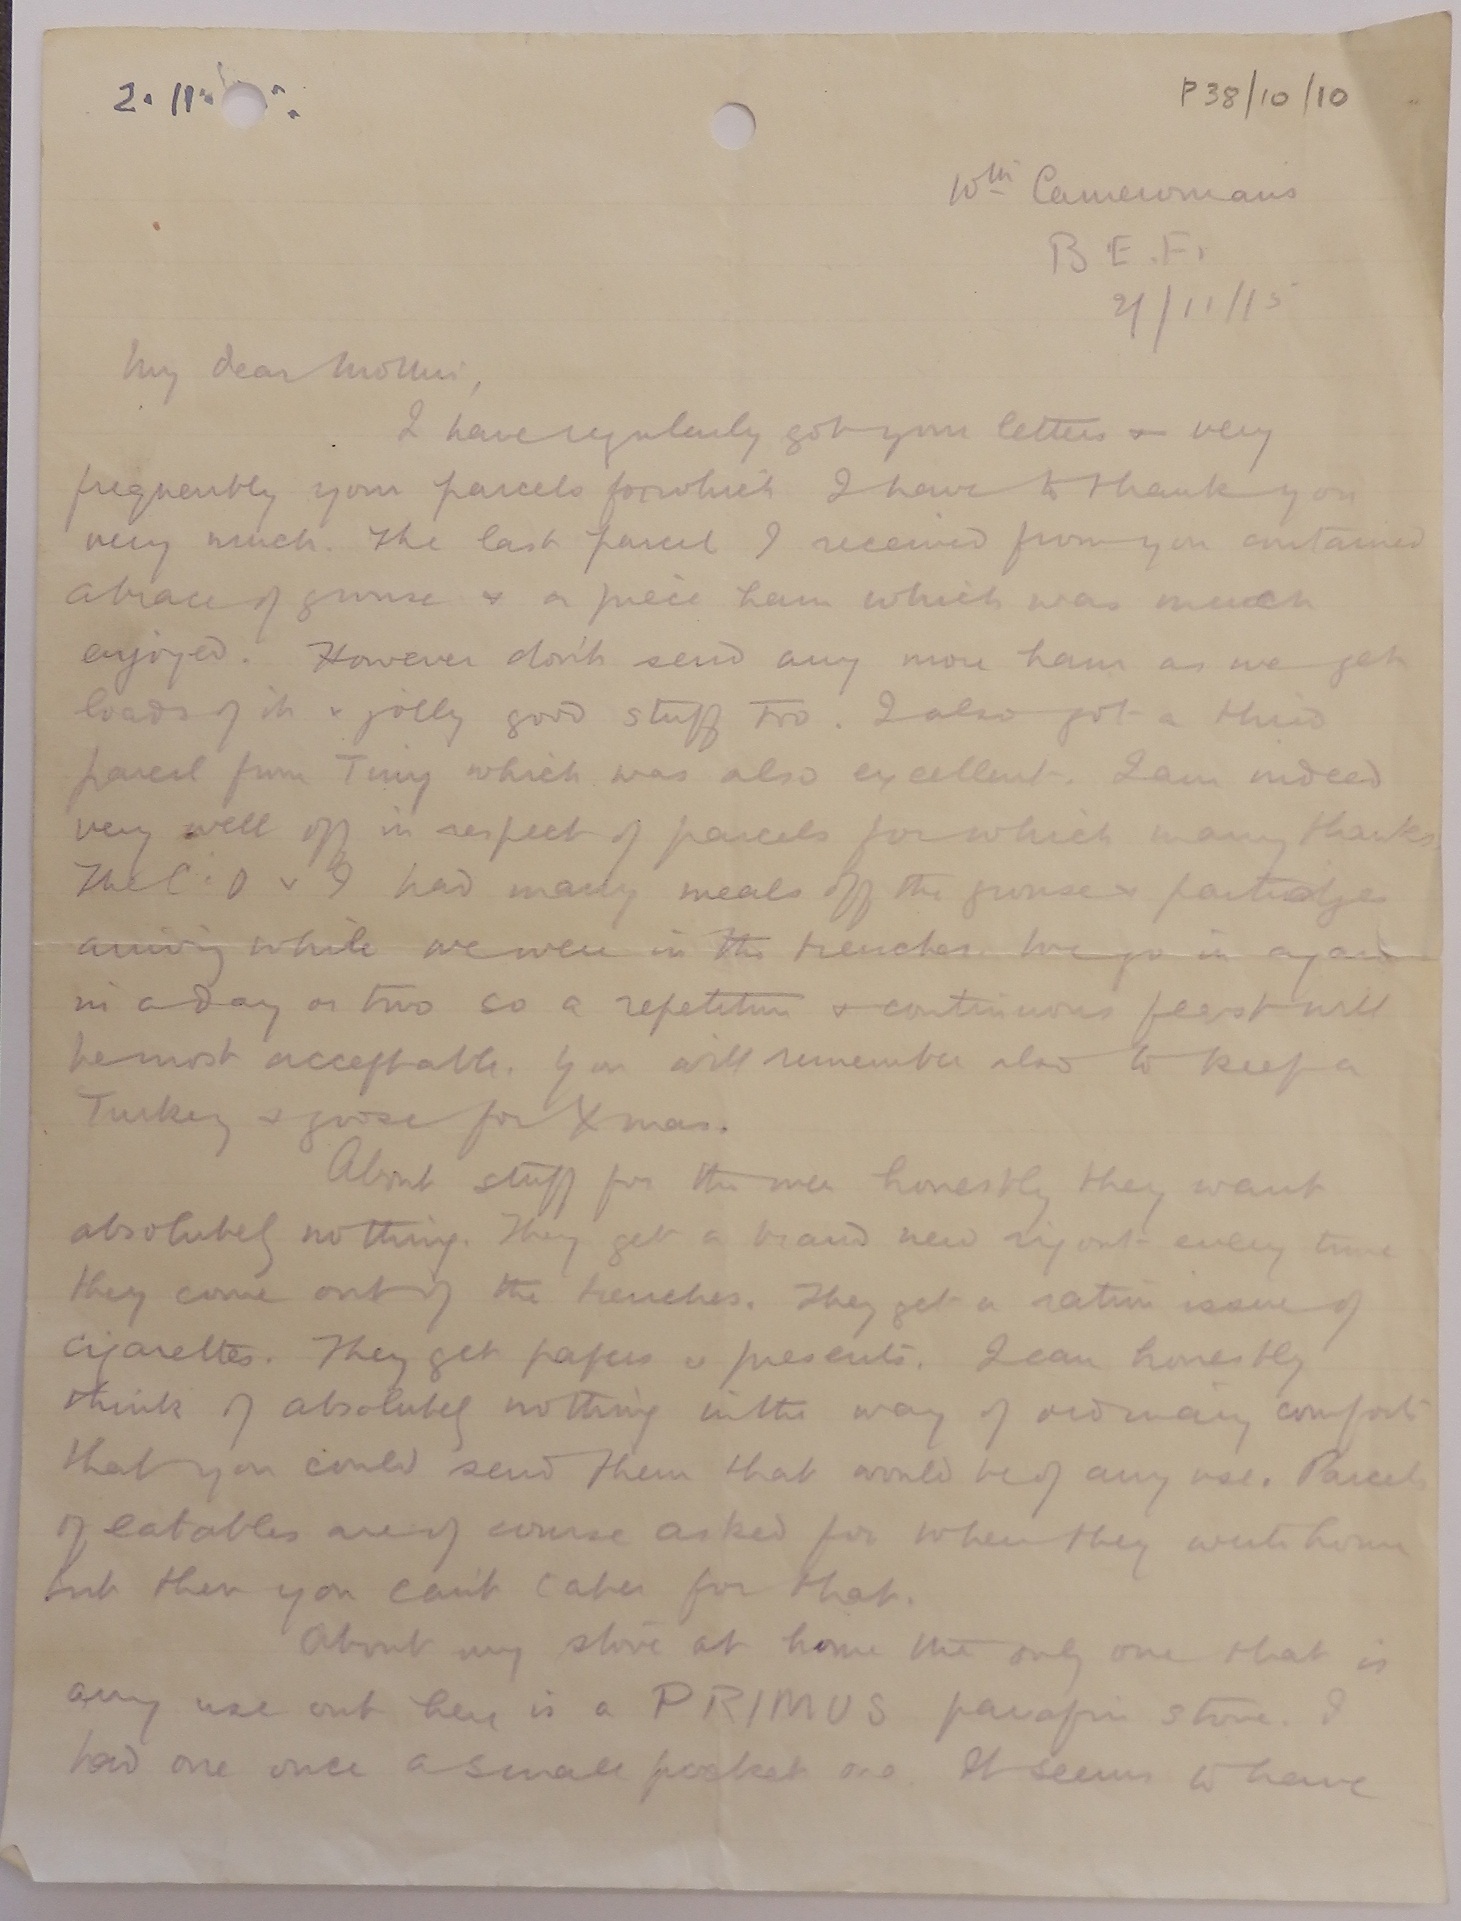 2. 11.
P38/10/10
10th Cameronians
B.E.F.
2/11/15
My dear Mother,
I have regularly got your letters & very
frequently your parcels for which I have to thank you
very much. The last parcel I received from you contained
a brace of grouse & a piece ham which was much
enjoyed. However don't send any more ham as we get
loads of it & jolly good stuff too. I also got a third
parcel from Tiny which was also excellent. I am indeed
very well off in respect of parcels for which many thanks.
The C.O & I had many meals off the grouse & partridges
arriving while we were in the trenches. We go in again
in a day or two so a repetition & continuous feast will
be most acceptable. You will remember also to keep a
Turkey & goose for Xmas.
About stuff for the men honestly they want
absolutely nothing. They get a brand new rig out every time
they come out of the trenches. They get a ration issue of
cigarettes. They get papers & presents. I can honestly
think of absolutely nothing in the way of ordinary comforts
that you could send them that would be of any use. Parcels
of eatables are of course asked for when they write home
but then you can't cater for that.
About my stove at home the only one that is
any use out here is a PRIMUS parafin stove. I
had one once a small pocket one. It seems to have